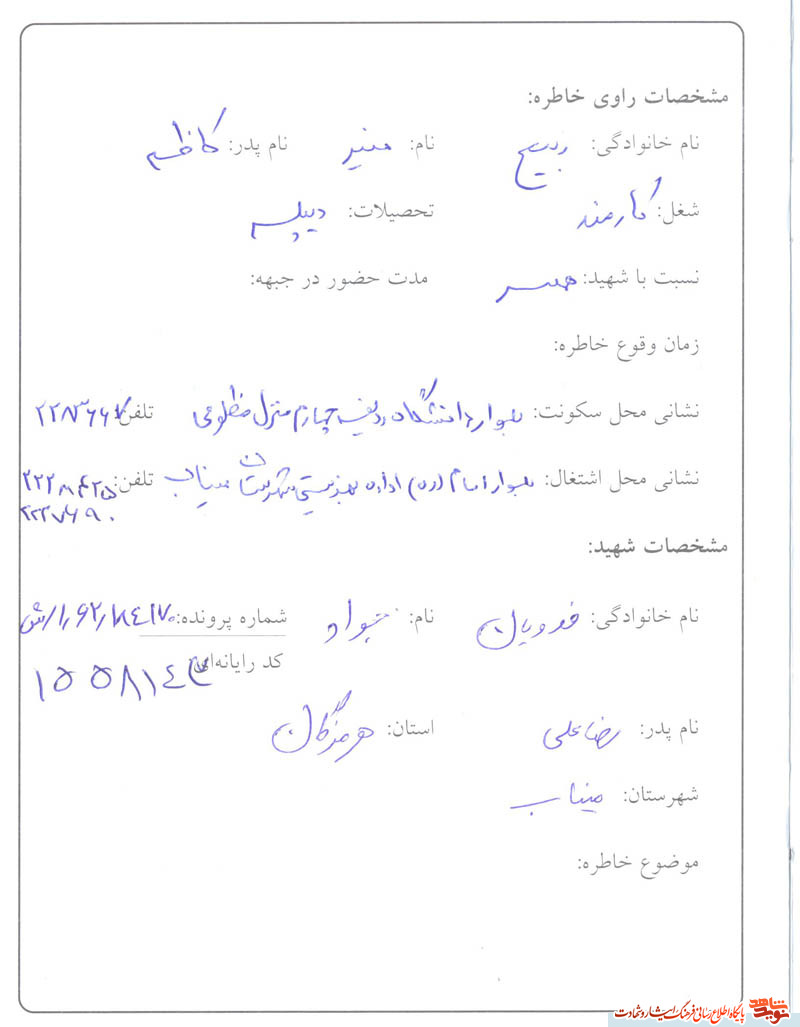 مشخصات راوی خاطره:
نام خانوادگی: ذبیح نام: منیر نام پدر: کاظم
شغل: کارمند تحصیلات: دیپلم
نسبت با شهید: همسر مدت حضور در جبهه:
زمان وقوع خاطره:
نشانی محل سکونت: بلوار دانشگاه ردیف چهارم منزل مظلومی تلفن:
نشانی محل اشتغال: بلوار امام (ره) اداره بهزیستی شهرستان میناب تلفن:
۲۲۲۷۶۹۰
مشخصات شهید:
نام خانوادگی: فدویان نام: جواد شماره پرونده:
کد رایانه‌ای:
۱۵۵۸۱۴۳
نام پدر: رضاعلی استان: هرمزگان
شهرستان: میناب
موضوع خاطره:
نوید شاهد پایگاه اطلاع رسانی فرهنگ ایثار و شهادت